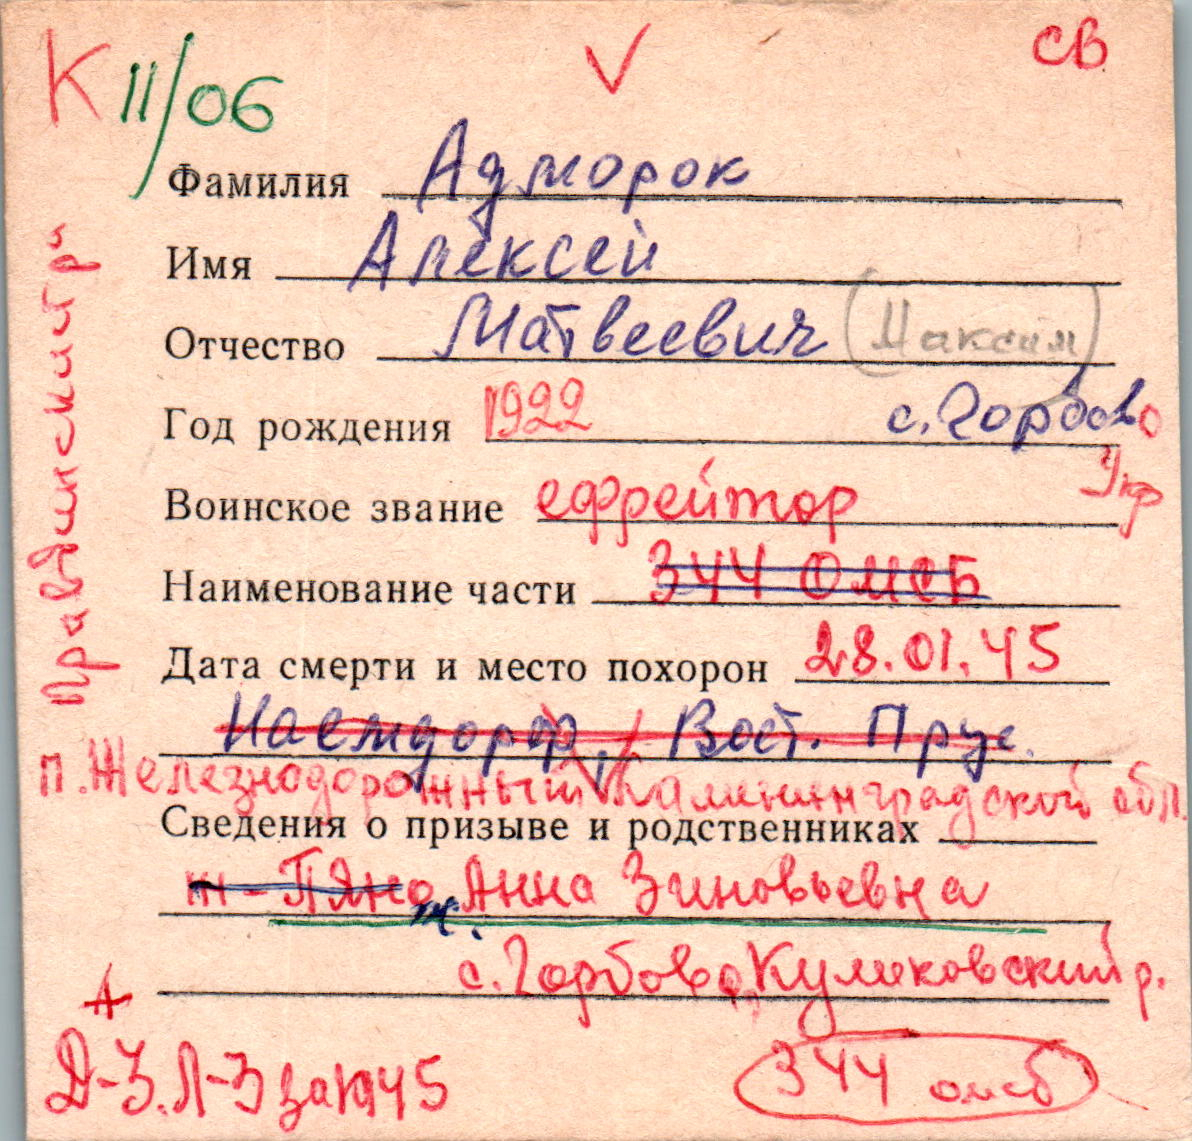 К 11/06 св
Фамилия Адморок
Имя Алексей
Отчество Матвеевич (Максим)
Год рождения 1922 с. Горбово
Укр
Воинское звание ефрейтор
Наименование части 344 ОМСБ
Дата смерти и место похорон 28.01.45
Наемсдорф, Вост. Прус.
п. Железнодорожный Калининградской обл.
Сведения о призыве и родственниках
ж - Пяно Анна Зиновьевна
ж.
с. Горбово, Куликовский р.
А
Д-3. Л-3 зак 45
344 омсб
Правдинский р-н